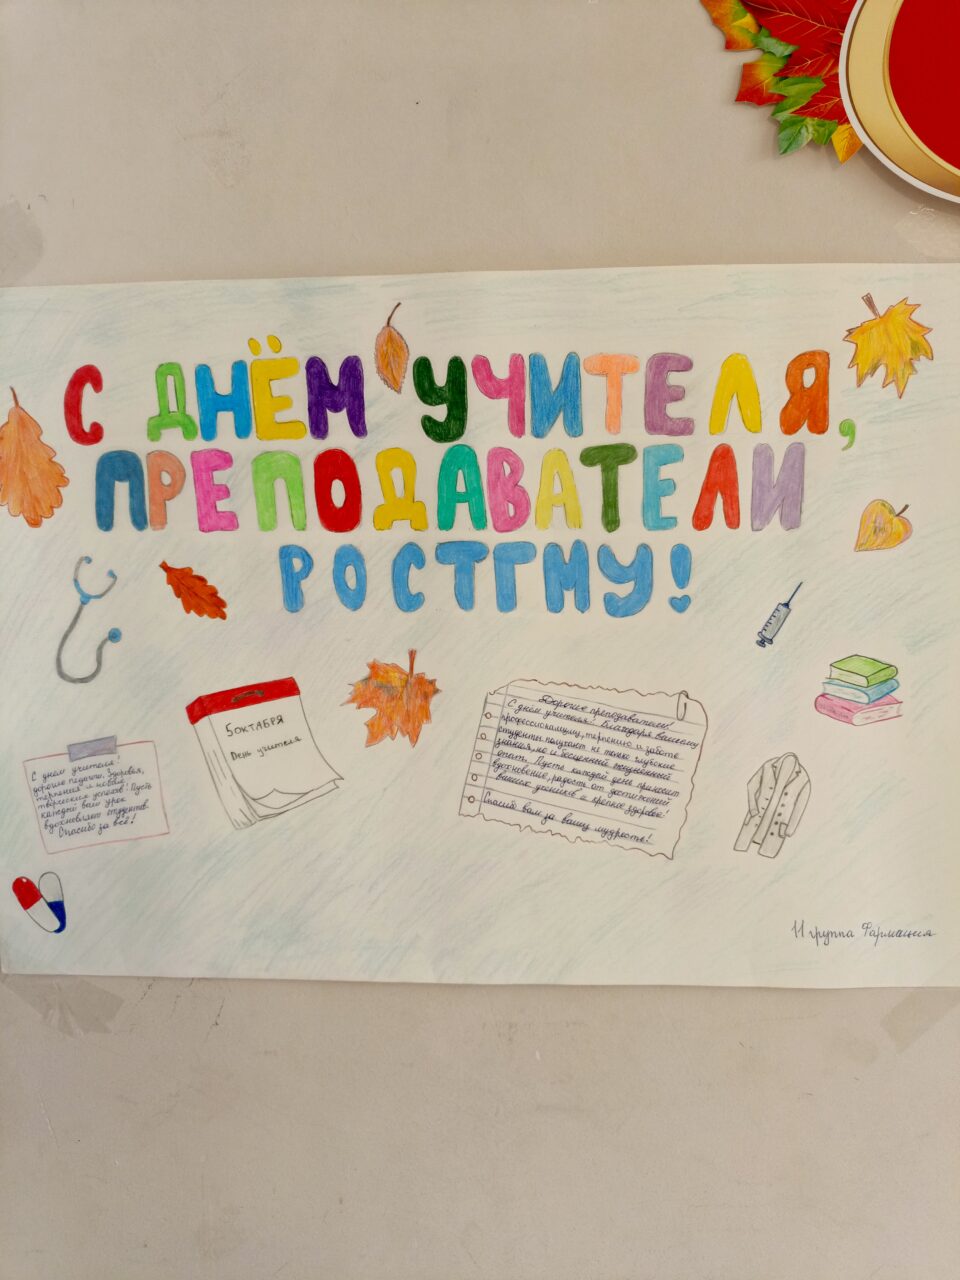 С ДНЁМ УЧИТЕЛЯ,
ПРЕПОДАВАТЕЛИ
РОСТГМУ!
5 ОКТЯБРЯ
День учителя
С днем учителя!
дорогие педагоги, Здоровья,
терпения и новых
творческих успехов! Пусть
каждый ваш урок
вдохновляет студентов.
Спасибо за всё!
Дорогие преподаватели!
С днём учителя! Благодаря вашему
профессионализму, терпению и заботе
студенты получают не только глубокие
знания, но и бесценный жизненный
опыт. Пусть каждый день приносит
вдохновение, радость от достижений
ваших учеников и крепкое здоровье!
Спасибо вам за вашу мудрость!
11 группа Фармация